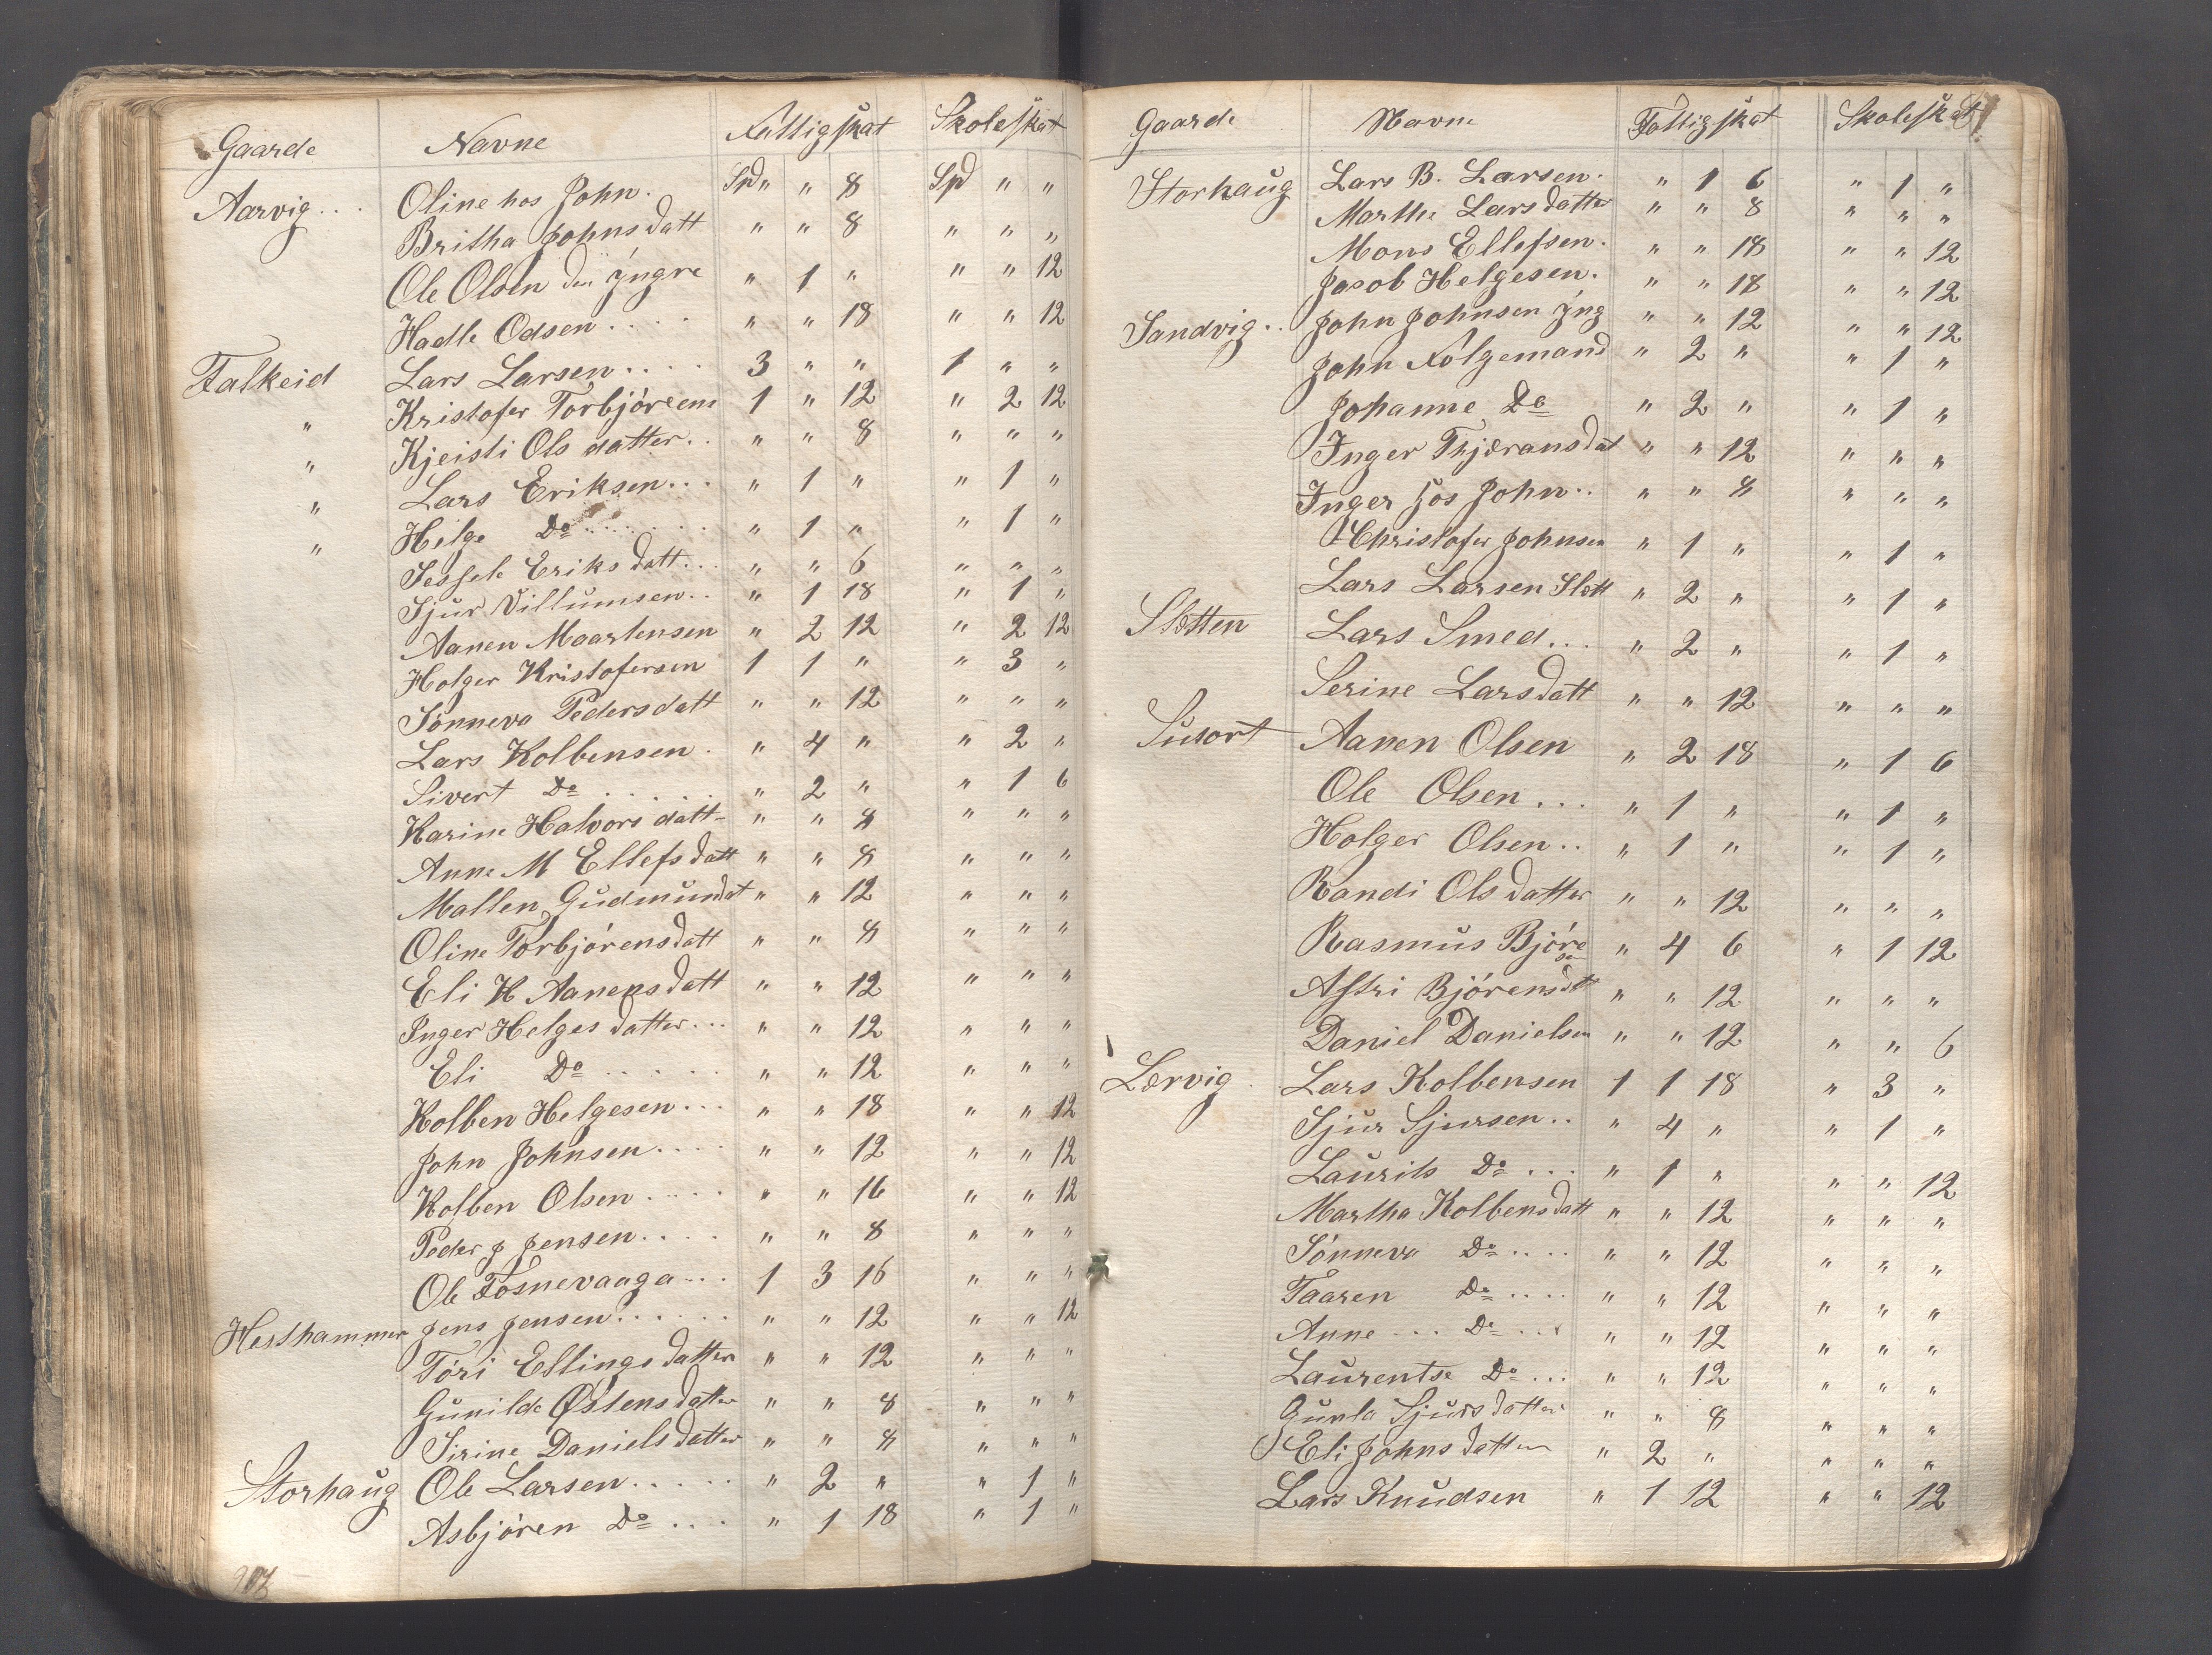 Gaarde Navne Fattigskat Skoleskat
Aarvig... Oline hos John. Spd " " 8 Spd " "
Britha Johnsdatt " " 8 " " "
Ole Olsen den Yngre " 1 " " " 12
Hadle Odsen.... " " 18 " " 12
Falkeid Lars Larsen.... 3 " " 1 " "
" Kristofer Torbjörensen 1 " 12 " 2 12
" Kjeisti Olsdatter.. " " 8 " " "
" Lars Eriksen... " 1 " " 1 "
" Helge Do....... " 1 " " 1 "
Sessele Eriksdatt... " " 6 " " "
Sjur Villumsen.. " 1 18 " 1 "
Aanen Maartensen " 2 12 " 2 12
Holger Kristofersen 1 1 " " 3 "
Sönneva Pedersdatt " " 12 " " "
Lars Kolbensen. " 4 " " 2 "
Sivert Do...... " 2 " " 1 6
Karine Halvorsdatt- " " 8 " " "
Anne M Ellefsdatt " " 8 " " "
Mallen Gudmundat " " 12 " " "
Oline Torbjörensdatt " " 8 " " "
Eli H Aanensdatt " " 12 " " "
Inger Helgesdatter... " " 12 " " "
Eli Do..... " " 12 " " "
Kolben Helgesen... " " 18 " " 12
John Johnsen.... " " 12 " " 12
Kolben Olsen..... " " 16 " " 12
Peder J Jensen.... " " 8 " " "
Ole Fosnevaaga... 1 3 16 " " "
Hesthammer Jens Jensen...... " " 12 " " 12
Töri Ellingsdatter " " 12 " " "
Gunilde Østensdatter " " 8 " " "
Sirine Danielsdatter " " 8 " " "
Storhaug Ole Larsen.... " 2 " " 1 "
Asbjören Do.... " 1 18 " 1 "
Gaarde Navne Fattigskat Skoleskat
Storhaug Lars B. Larsen. " 1 6 " 1 "
Marthe Larsdatter " " 8 " " "
Mons Ellefsen. " " 18 " " 12
Jacob Helgesen. " " 18 " " 12
Sandvig.. John Johnsen Yng " " 12 " " 12
John Følgemand " 2 " " 1 "
Johanne Do " 2 " " 1 "
Inger Thjeransdat " " 12 " " "
Inger hos John.. " " 8 " " "
Christofer Johnsen " 1 " " 1 "
Lars Larsen Slett " 2 " " 1 "
Sletten Lars Smed... " 2 " " 1 "
Serine Larsdatt " " 12 " " "
Susort Aanen Olsen " 2 18 " 1 6
Ole Olsen... " 1 " " 1 "
Holger Olsen.. " 1 " " 1 "
Randi Olsdatter " " 12 " " "
Rasmus Björesen " 4 6 " 1 12
Astri Björensdtt " " 12 " " "
Daniel Danielsen " " 12 " " 6
Lervig. Lars Kolbensen 1 1 18 " 3 "
Sjur Sjursen.. " 4 " " 1 "
Laurits Do... " 1 " " " 12
Martha Kolbensdatt " " 12 " " "
Sönneva Do.... " " 12 " " "
Taaren Do.... " " 12 " " "
Anne... Do... " " 12 " " "
Laurentse Do... " " 12 " " "
Gunla Sjursdatter " " 8 " " "
Eli Johnsdatter " 2 " " " "
Lars Knudsen " 1 12 " " 12